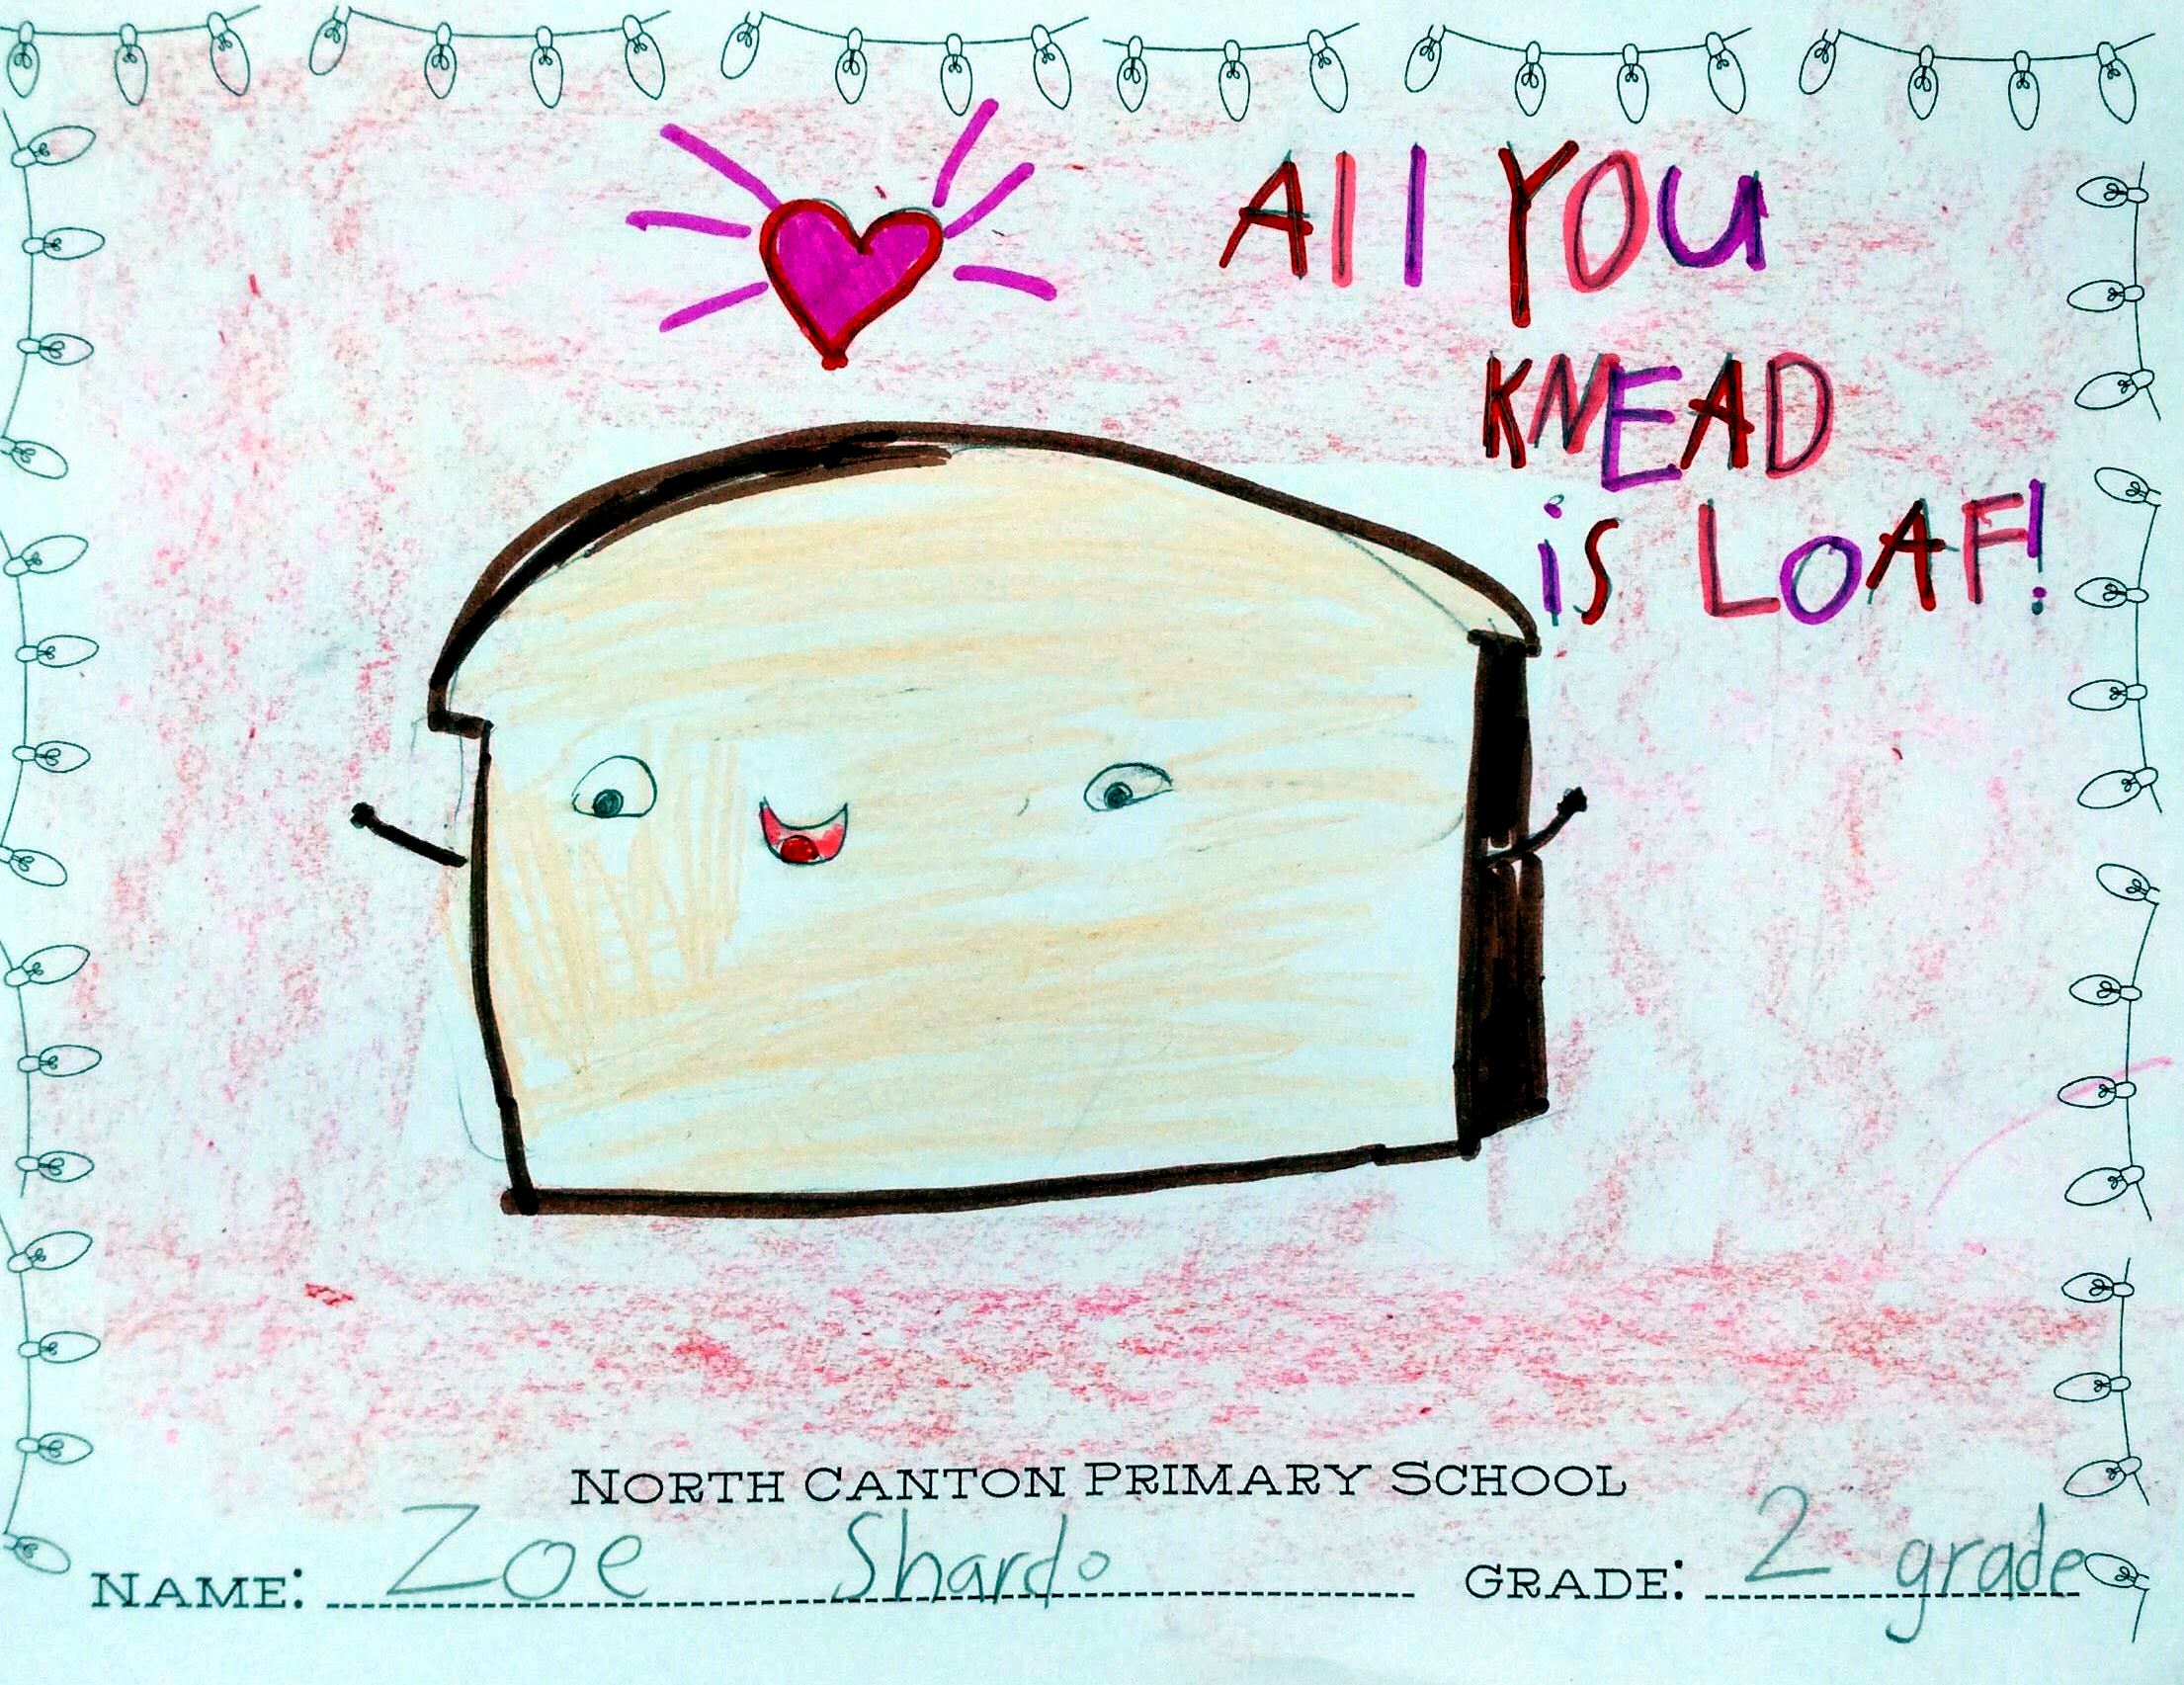 All YOU
KNEAD
is LOAF!
NORTH CANTON PRIMARY SCHOOL
NAME: Zoe Shardo GRADE: 2 grade